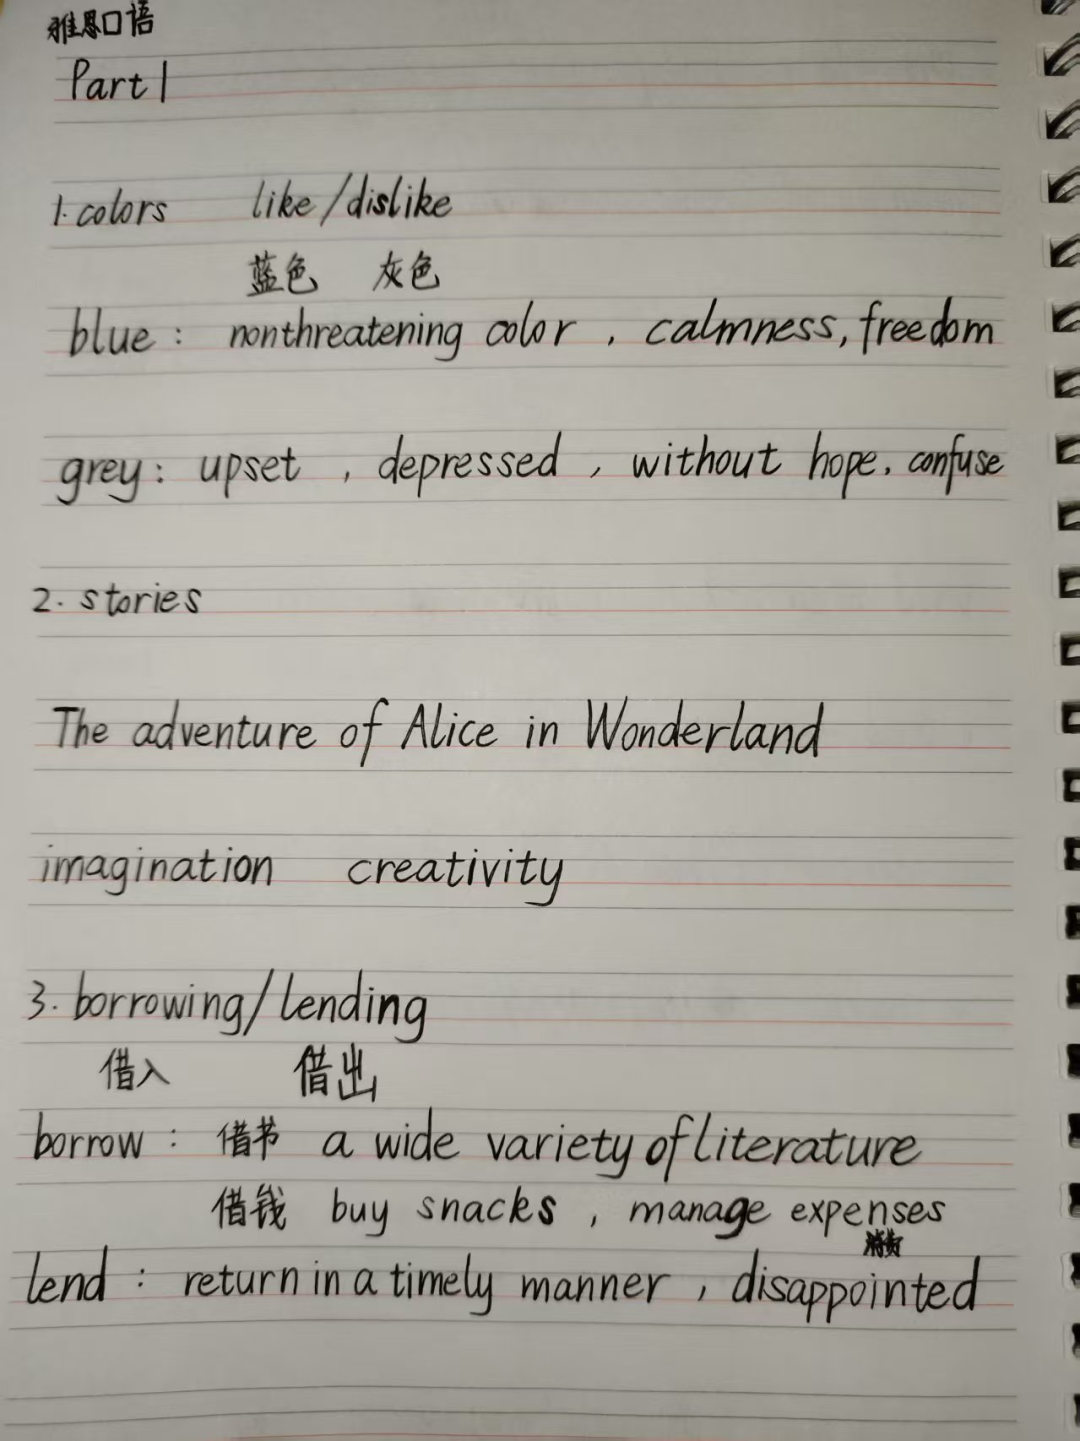 雅思口语
Part 1
1. colors like/dislike
蓝色 灰色
blue : nonthreatening color , calmness, freedom
grey : upset , depressed , without hope, confuse
2. stories
The adventure of Alice in Wonderland
imagination creativity
3. borrowing/lending
借入 借出
borrow : 借书 a wide variety of literature
借钱 buy snacks , manage expenses
消费
lend : return in a timely manner , disappointed